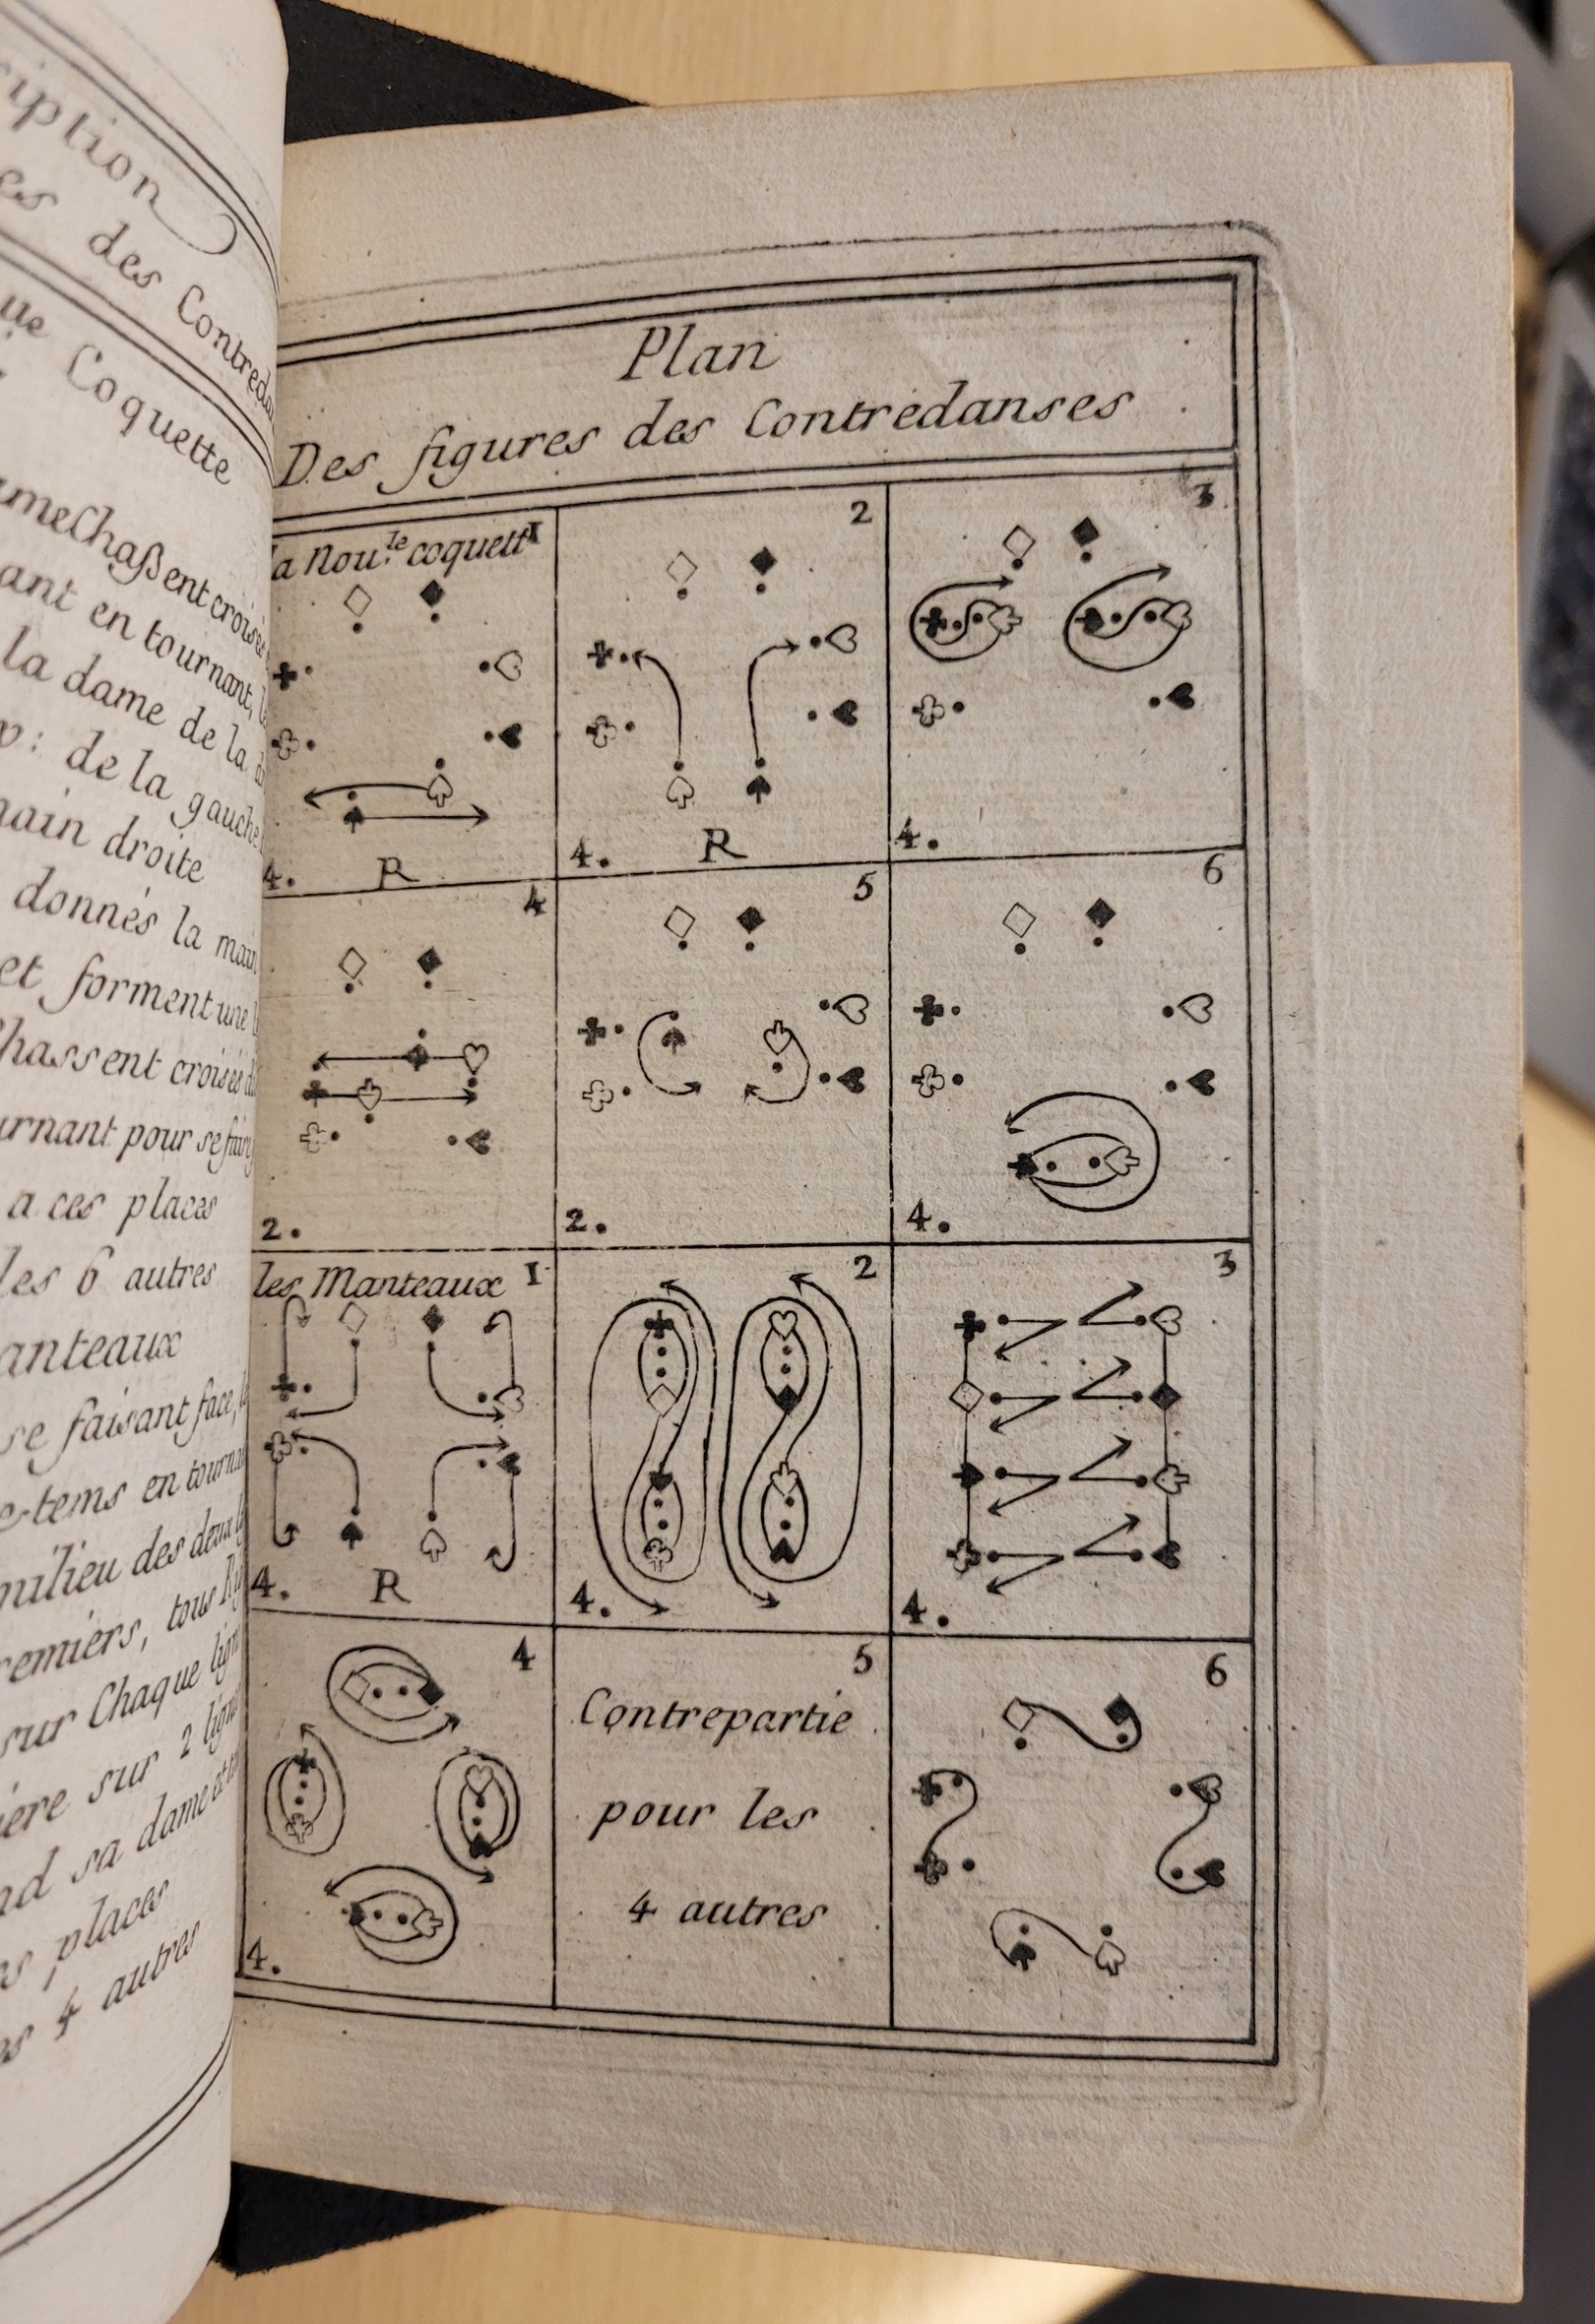 iption
es des Contreda
ue Coquette
ameChaßent croisé
ant en tournant,
la dame de la
de la gauche
main droite
donnés la main
et forment une
Chassent croisés
urnant pour se faire
a ces places
les 6 autres
anteaux
se faisant face,
e-tems en tourna
milieu des deux
remiers, tous
sur Chaque lign
iere sur 2 lign
nd sa dame et
s places
es 4 autres
Plan
Des figures des Contredanses
la Nou.le coquett 1
4. R
2
4. R
3
4.
4
2.
5
2.
6
4.
les Manteaux 1
4. R
2
4.
3
4.
4
4.
5
Contrepartie
pour les
4 autres
6